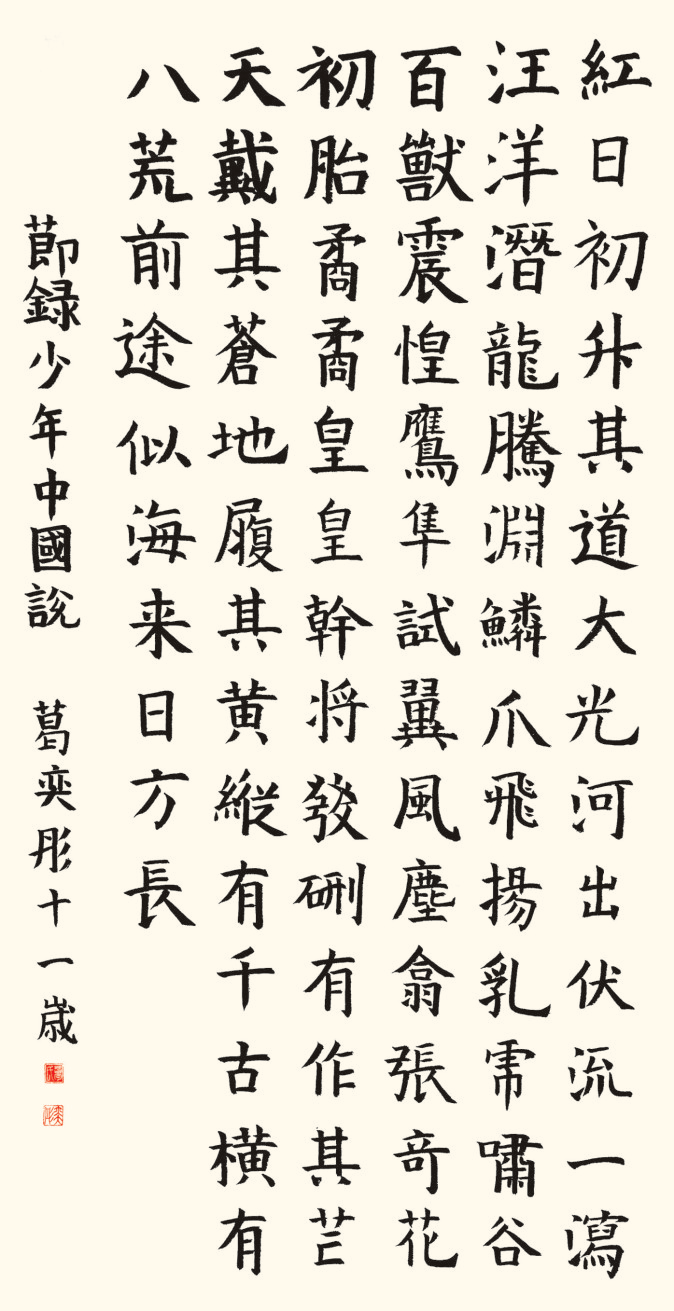 紅日初升其道大光河出伏流一瀉
汪洋潛龍騰淵鱗爪飛揚乳虎嘯谷
百獸震惶鷹隼試翼風塵翕張奇花
初胎矞矞皇皇幹將發硎有作其芒
天戴其蒼地履其黄縱有千古橫有
八荒前途似海来日方長
節録少年中國説
葛奕彤十一歲